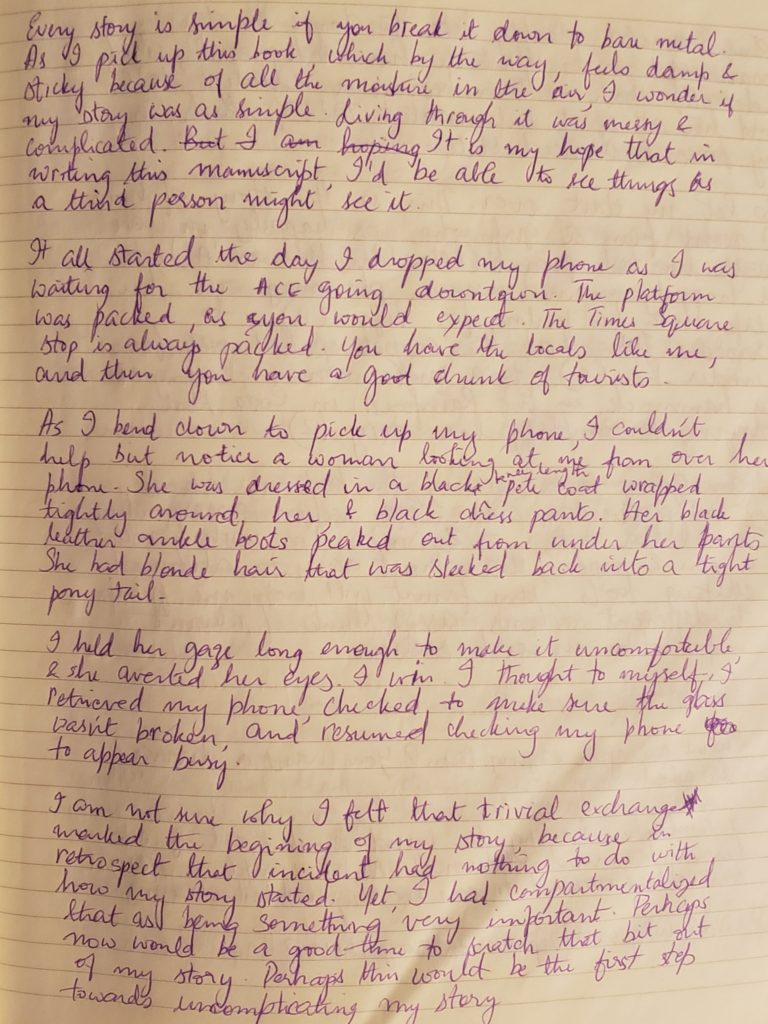 Every story is simple if you break it down to bare metal.
As I pick up this book, which by the way, feels damp &
sticky because of all the moisture in the air, I wonder if
my story was as simple. Living through it was messy &
complicated. But I am hoping It is my hope that in
writing this manuscript, I'd be able to see things as
a third person might see it.
It all started the day I dropped my phone as I was
waiting for the ACE going downtown. The platform
was packed, as you would expect. The Times Square
stop is always packed. You have the locals like me,
and then you have a good chunk of tourists.
As I bend down to pick up my phone, I couldn't
help but notice a woman looking at me from over her
phone. She was dressed in a black knee length pete coat wrapped
tightly around her, & black dress pants. Her black
leather ankle boots peaked out from under her pants
She had blonde hair that was sleeked back into a tight
pony tail.
I held her gaze long enough to make it uncomfortable,
& she averted her eyes. I win. I thought to myself. I
retrieved my phone, checked to make sure the glass
wasn't broken, and resumed checking my phone
to appear busy.
I am not sure why I felt that trivial exchange
marked the begining of my story, because in
retrospect that incident had nothing to do with
how my story started. Yet, I had compartmentalized
that as being something very important. Perhaps
now would be a good time to scratch that bit out
of my story. Perhaps this would be the first step
towards uncomplicating my story